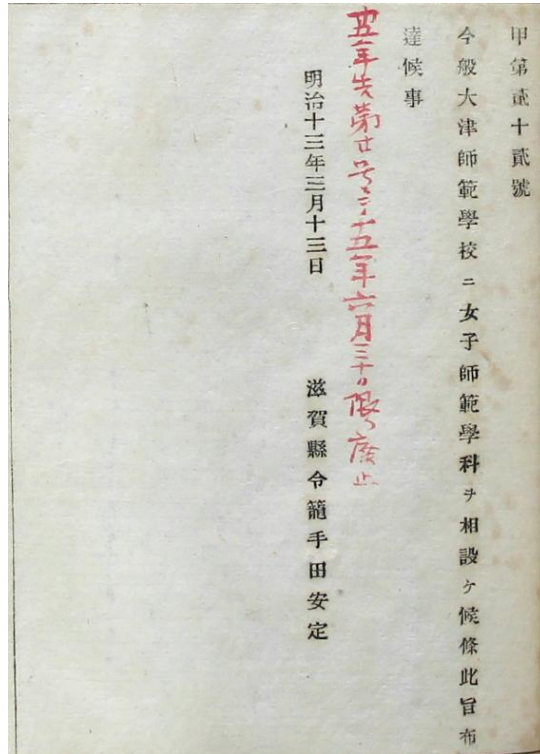 甲第貳十貳號
今般大津師範學校ニ女子師範學科ヲ相設ケ候條此旨布
達候事
年 第廿号ニテ十五年六月三十日限廃止
明治十三年三月十三日
滋賀縣令籠手田安定